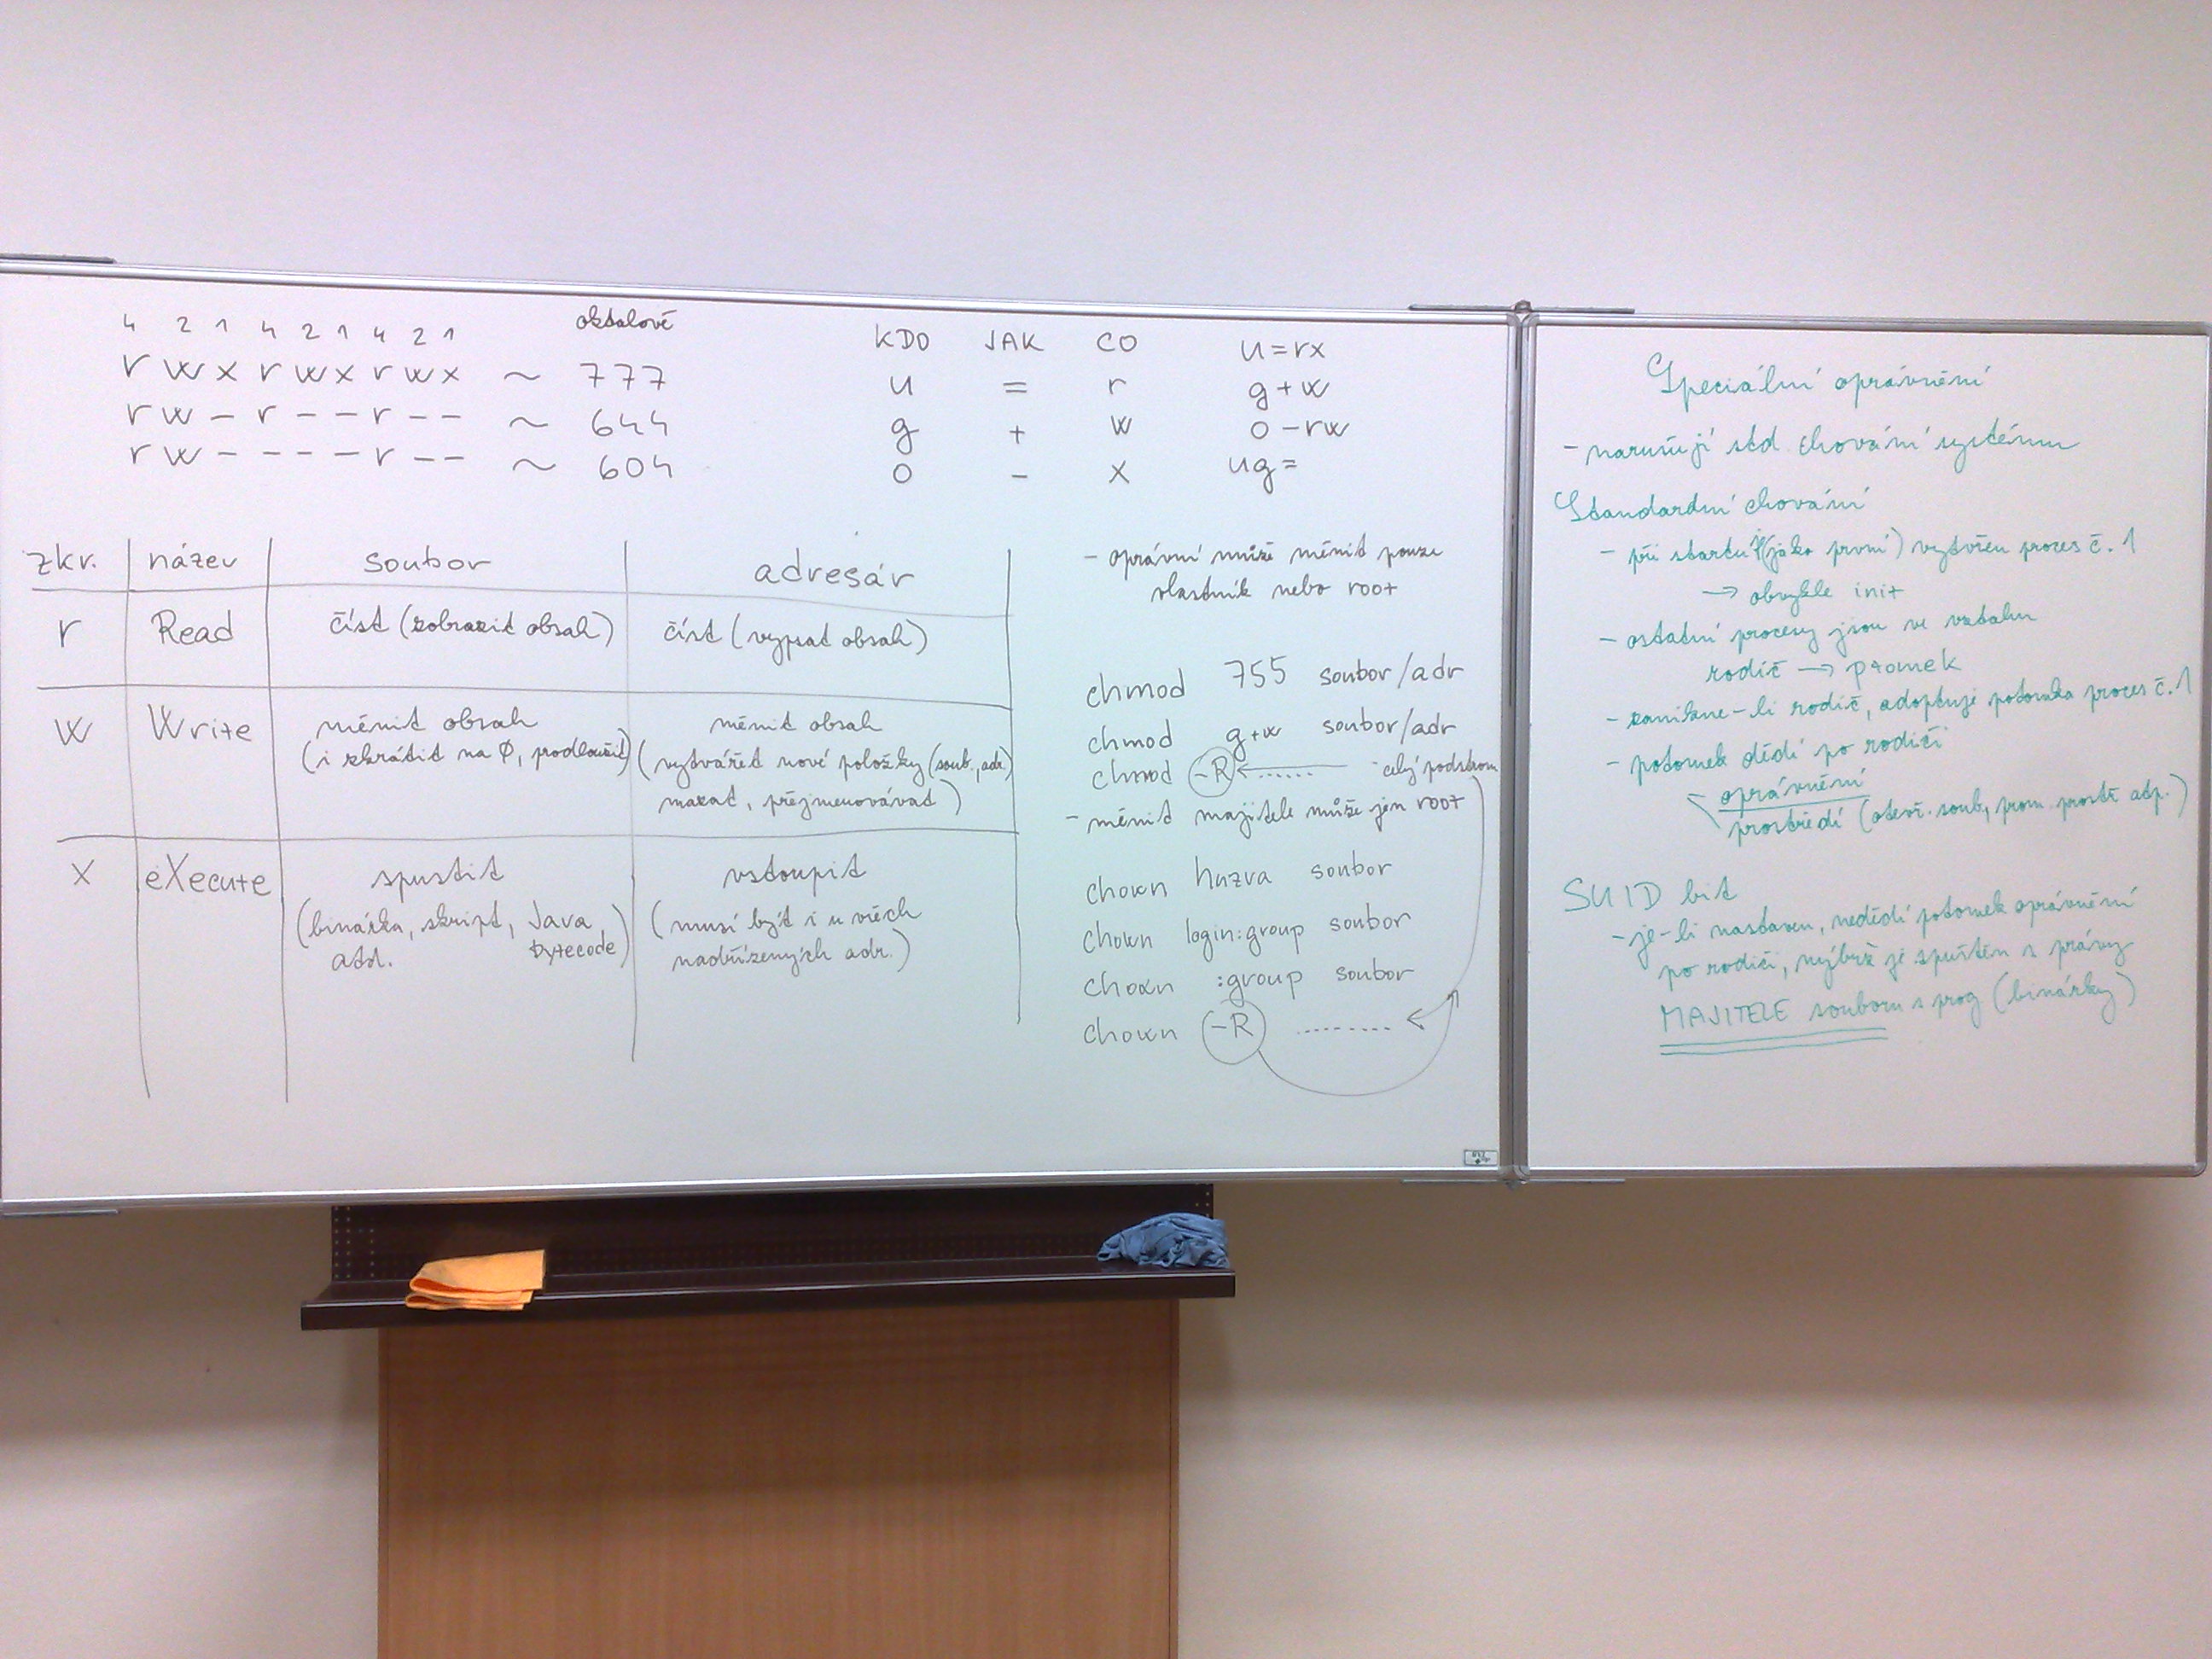 4 2 1 4 2 1 4 2 1 oktalově
r w x r w x r w x ~ 777
r w - r - - r - - ~ 644
r w - - - - r - - ~ 604
KDO JAK CO u=rx
u = r g+w
g + w o-rw
o - x ug=
zkr. název soubor adresár
r Read číst (zobrazit obsah) číst (vypsat obsah)
w Write měnit obsah měnit obsah
(i zkrátit na 0, prodloužit) (vytvářet nové položky (soub., adr.)
mazat, přejmenovávat)
x eXecute spustit vstoupit
(binárka, skript, Java (musí být i u všech
atd. bytecode) nadřízených adr.)
- oprávní může měnit pouze
vlastník nebo root
chmod 755 soubor/adr
chmod g+w soubor/adr
chmod -R ...... celý podstrom
- měnit majitele může jen root
chown huzva soubor
chown login:group soubor
chown :group soubor
chown -R .........
Speciální oprávnění
- narušují std chování systému
Standardní chování
- při startu (jako první) vytvřen proces č. 1
→ obvykle init
- ostatní procesy jsou ve vztahu
rodič → ptomek
- zanikne-li rodič, adoptuje potomka proces č. 1
- potomek dědí po rodiči
oprávnění
prostředí (otevř. soub, prom. prostř atp.)
SUID bit
- je-li nastaven, nedědí potomek oprávnění
po rodiči, nýbrž je spuštěn s právy
MAJITELE souboru s prog (binárky)